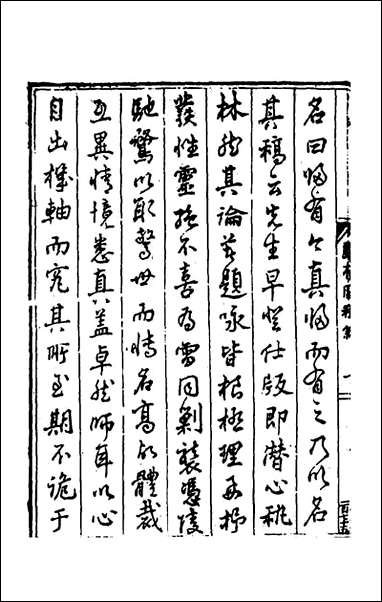 名曰歸有今真歸而有之乃以名
其稿云先生早登仕版即潛心秇
林然其論著題咏皆根極理要抒
發性靈絕不喜為雷同剿襲憑陵
馳騖以取驚世而博名高故體裁
互異情境悉真蓋卓然師以心
自出機軸而究其所至期不詭于
歸有園稿 一